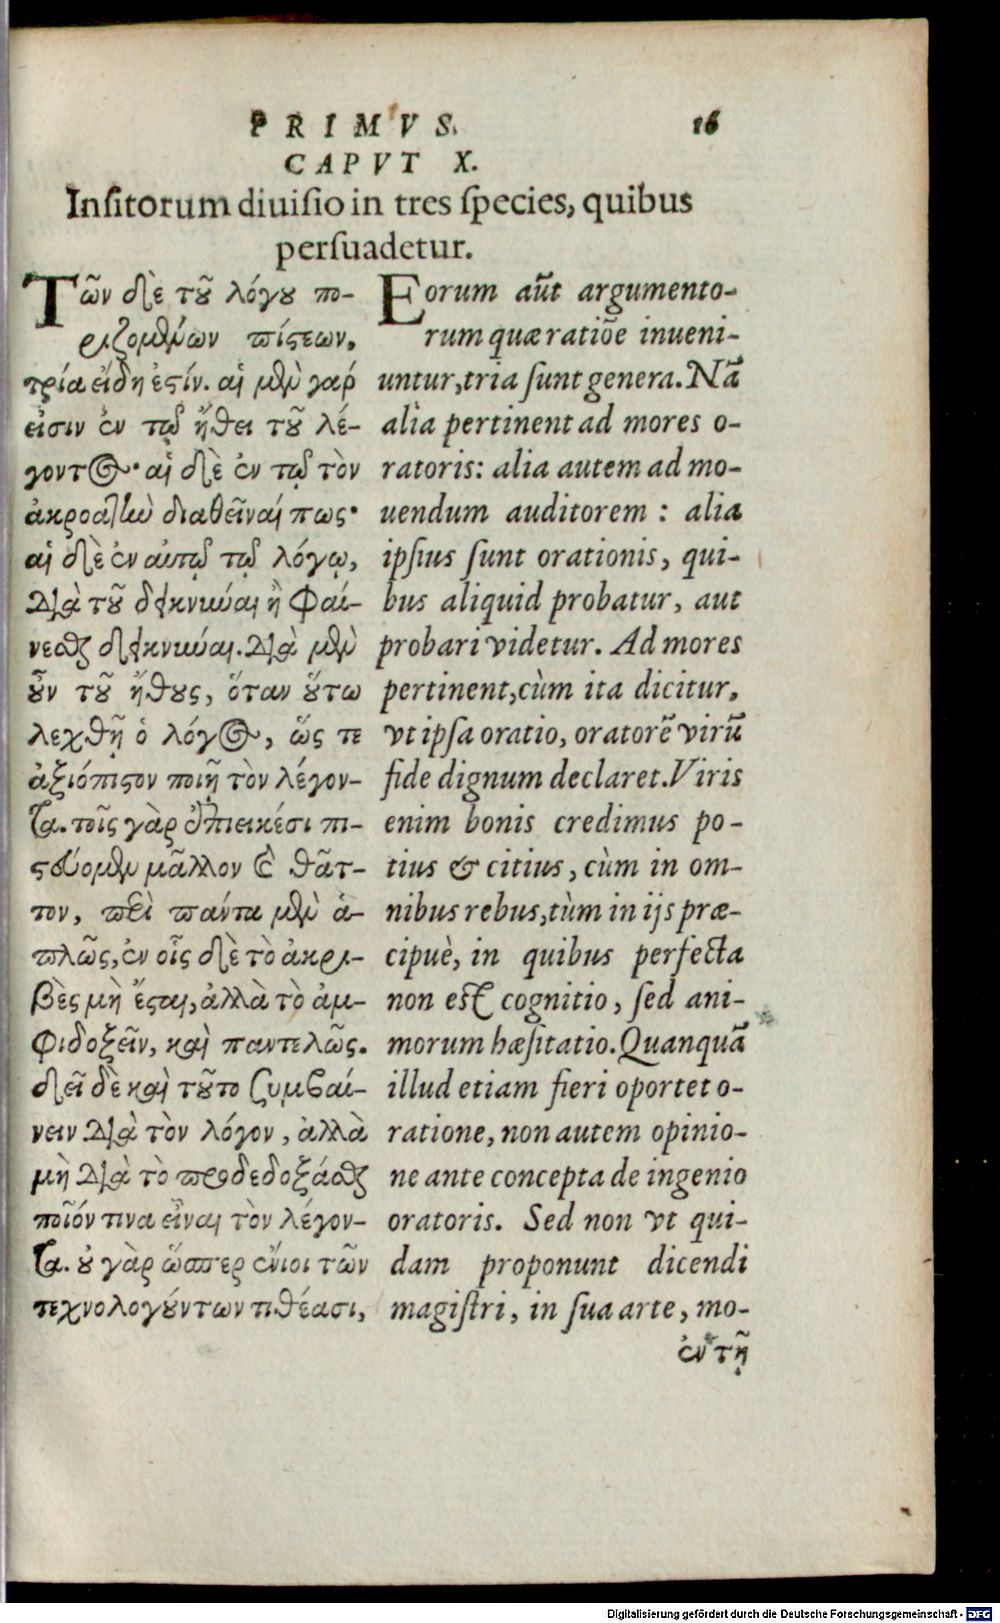 PRIMVS.
16
CAPVT X.
Insitorum diuisio in tres species, quibus
persuadetur.
Τῶν δὲ τοῦ λόγου πο-
ριζομένων πίστεων,
τρία εἴδη ἐστίν. αἱ μὲν γάρ
εἰσιν ἐν τῷ ἤθει τοῦ λέ-
γοντος· αἱ δὲ ἐν τῷ τὸν
ἀκροατὴν διαθεῖναί πως·
αἱ δὲ ἐν αὐτῷ τῷ λόγῳ,
διὰ τοῦ δεικνύναι ἢ φαί-
νεσθαι δεικνύναι. διὰ μὲν
οὖν τοῦ ἤθους, ὅταν οὕτω
λεχθῇ ὁ λόγος, ὥς τε
ἀξιόπιστον ποιῇ τὸν λέγον-
τα. τοῖς γὰρ ἐπιεικέσι πι-
στεύομεν μᾶλλον καὶ θᾶτ-
τον, περὶ πάντα μὲν ἁ-
πλῶς, ἐν οἷς δὲ τὸ ἀκρι-
βὲς μὴ ἔσται, ἀλλὰ τὸ ἀμ-
φιδοξεῖν, καὶ παντελῶς.
δεῖ δὲ καὶ τοῦτο συμβαί-
νειν διὰ τὸν λόγον, ἀλλὰ
μὴ διὰ τὸ προδεδοξάσθαι
ποῖόν τινα εἶναι τὸν λέγον-
τα. οὐ γὰρ ὥσπερ ἔνιοι τῶν
τεχνολογούντων τιθέασι,
Eorum aūt argumento-
rum quæ ratiōe inueni-
untur, tria sunt genera. Nā
alia pertinent ad mores o-
ratoris: alia autem ad mo-
uendum auditorem : alia
ipsius sunt orationis, qui-
bus aliquid probatur, aut
probari videtur. Ad mores
pertinent, cùm ita dicitur,
vt ipsa oratio, oratorē virū
fide dignum declaret. Viris
enim bonis credimus po-
tius & citius, cùm in om-
nibus rebus, tùm in ijs præ-
cipuè, in quibus perfecta
non est cognitio, sed ani-
morum hæsitatio. Quanquā
illud etiam fieri oportet o-
ratione, non autem opinio-
ne ante concepta de ingenio
oratoris. Sed non vt qui-
dam proponunt dicendi
magistri, in sua arte, mo-
ἐν τῇ
Digitalisierung gefördert durch die Deutsche Forschungsgemeinschaft - DFG